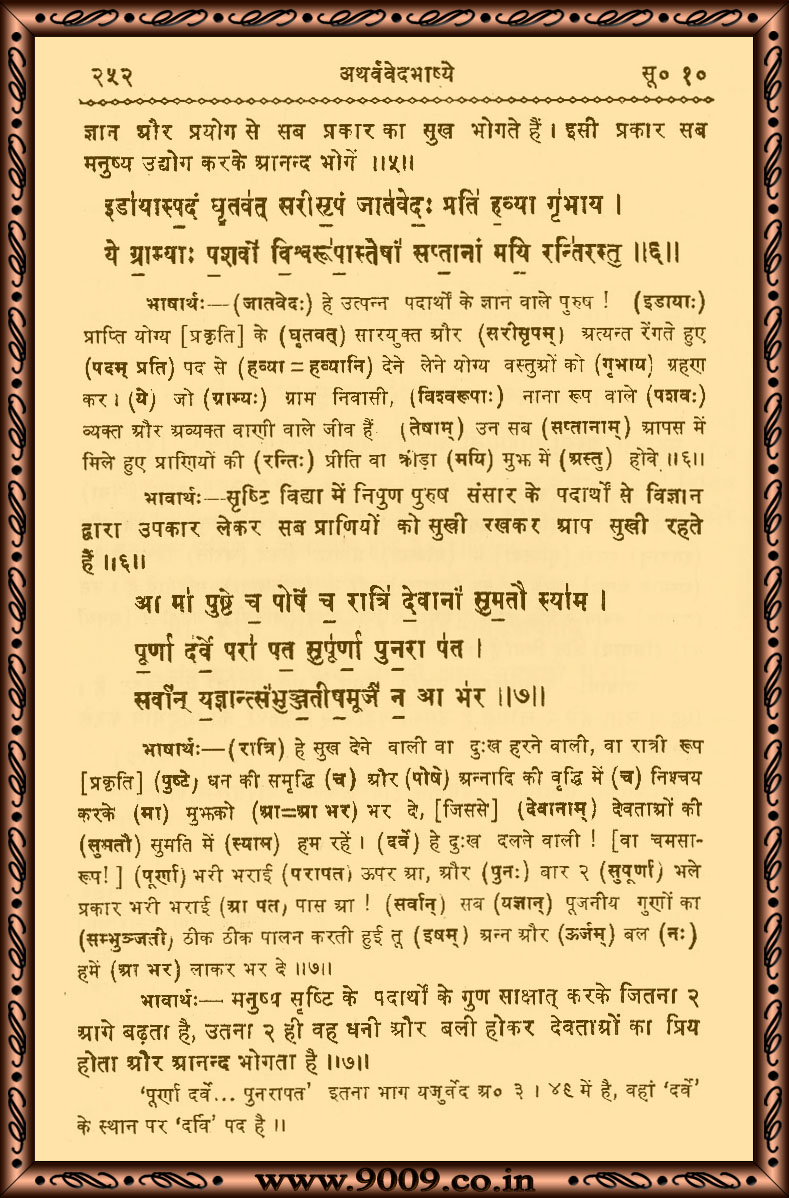 २५२ अथर्ववेदभाष्ये सू० १०
ज्ञान और प्रयोग से सब प्रकार का सुख भोगते हैं । इसी प्रकार सब
मनुष्य उद्योग करके आनन्द भोगें ॥५॥
इडा॑यास्प॒दं घृ॒तव॑त् सरीसृ॒पं जात॑वेदः॒ प्रति॑ ह॒व्या गृ॑भाय ।
ये ग्रा॒म्याः प॒शवो॑ वि॒श्वरू॑पा॒स्तेषां॑ सप्ता॒नां मयि॒ रन्ति॑रस्तु॒ ॥६॥
भाषार्थः—(जातवेदः) हे उत्पन्न पदार्थों के ज्ञान वाले पुरुष ! (इडायाः)
प्राप्ति योग्य [प्रकृति] के (घृतवत्) सारयुक्त और (सरीसृपम्) अत्यन्त रेंगते हुए
(पदम् प्रति) पद से (हव्या = हव्यानि) देने लेने योग्य वस्तुओं को (गृभाय) ग्रहण
कर । (ये) जो (ग्राम्यः) ग्राम निवासी, (विश्वरूपाः) नाना रूप वाले (पशवः)
व्यक्त और अव्यक्त वाणी वाले जीव हैं (तेषाम्) उन सब (सप्तानाम्) आपस में
मिले हुए प्राणियों की (रन्तिः) प्रीति वा क्रीड़ा (मयि) मुझ में (अस्तु) होवे ॥६॥
भावार्थः—सृष्टि विद्या में निपुण पुरुष संसार के पदार्थों से विज्ञान
द्वारा उपकार लेकर सब प्राणियों को सुखी रखकर आप सुखी रहते
हैं ॥६॥
आ मा॑ पु॒ष्टे च॒ पोषे॑ च॒ रात्रि॑ दे॒वानां॑ सुम॒तौ स्या॑म ।
पू॒र्णा द॑र्वे॒ परा॑ पत॒ सुपू॑र्णा॒ पुन॒रा प॑त ।
सर्वा॑न् य॒ज्ञान्त्सं॑भुञ्ज॒तीष॒मूर्जं॑ न॒ आ भ॑र ॥७॥
भाषार्थः—(रात्रि) हे सुख देने वाली वा दुःख हरने वाली, वा रात्री रूप
[प्रकृति] (पुष्टे) धन की समृद्धि (च) और (पोषे) अन्नादि की वृद्धि में (च) निश्चय
करके (मा) मुझको (आ=आ भर) भर दे, [जिससे] (देवानाम्) देवताओं की
(सुमतौ) सुमति में (स्याम) हम रहें । (दर्वे) हे दुःख दलने वाली ! [वा चमसा-
रूप!] (पूर्णा) भरी भराई (परापत) ऊपर आ, और (पुनः) बार २ (सुपूर्णा) भले
प्रकार भरी भराई (आ पत) पास आ ! (सर्वान्) सब (यज्ञान्) पूजनीय गुणों का
(सम्भुञ्जती) ठीक ठीक पालन करती हुई तू (इषम्) अन्न और (ऊर्जम्) बल (नः)
हमें (आ भर) लाकर भर दे ॥७॥
भावार्थः— मनुष्य सृष्टि के पदार्थों के गुण साक्षात् करके जितना २
आगे बढ़ता है, उतना २ ही वह धनी और बली होकर देवताओं का प्रिय
होता और आनन्द भोगता है ॥७॥
‘पूर्णा दर्वे... पुनरापत’ इतना भाग यजुर्वेद अ० ३ । ४९ में है, वहां ‘दर्वे’
के स्थान पर ‘दर्वि’ पद है ॥
www.9009.co.in